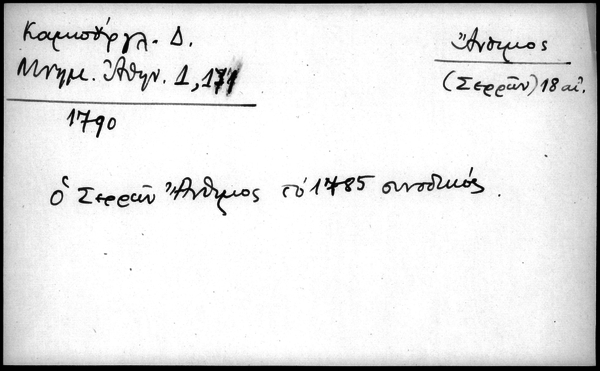 Καμπούργλ. Δ.
Μνημ. Ἀθην. 1,
1790
Ἄνθιμος
(Σερρῶν) 18 αἰ.
ὁ Σερρῶν Ἄνθιμος τό 1785 συνοδικός.